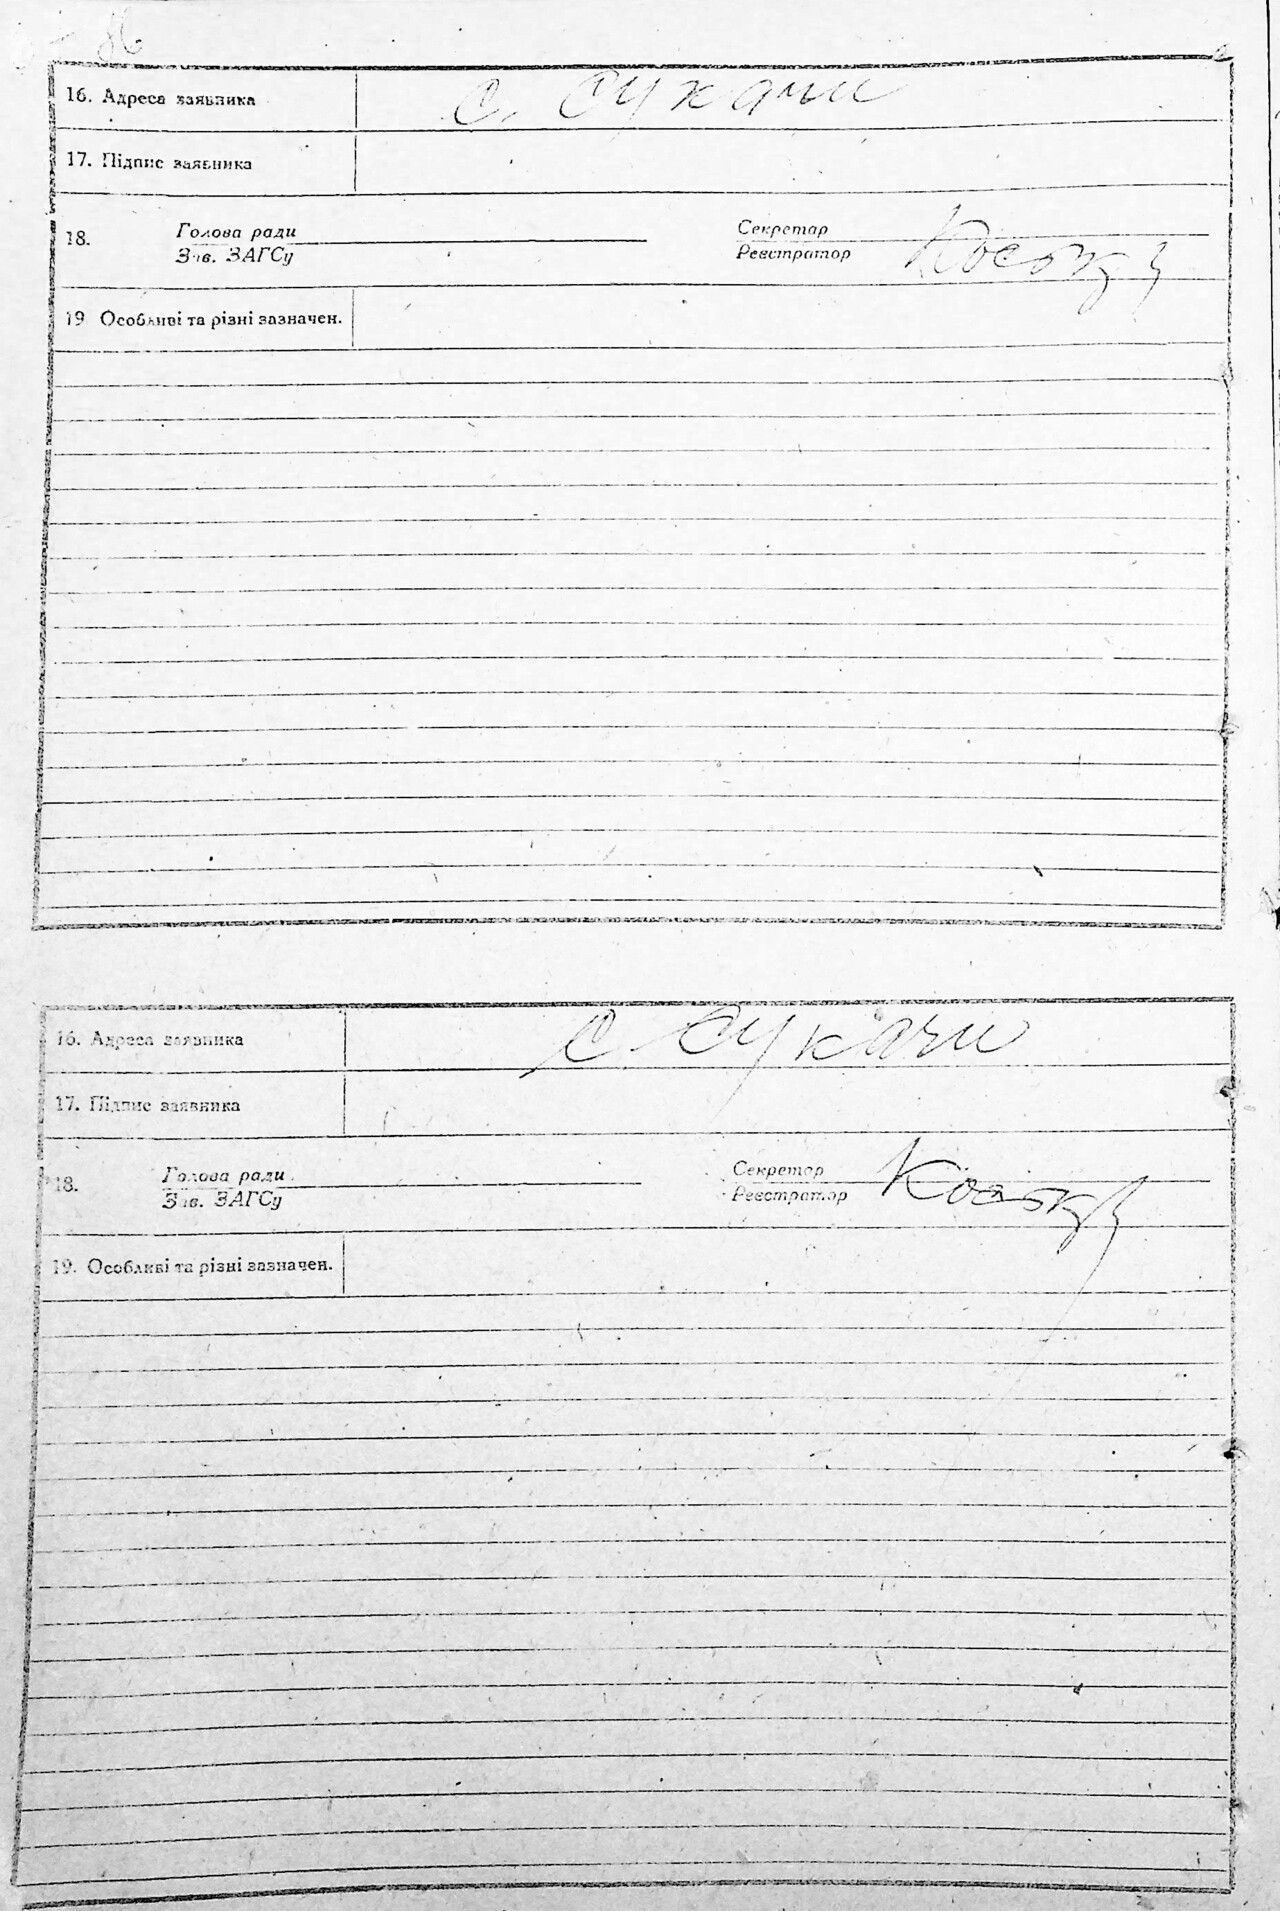 86
16. Адреса заявника с. Сукачи
17. Підпис заявника
18. Голова ради Секретар
Зав. ЗАГСу Реєстратор
19 Особливі та різні зазначен.
16. Адреса заявника с Сукачи
17. Підпис заявника
18. Голова ради Секретар
Зав. ЗАГСу Реєстратор
19. Особливі та різні зазначен.